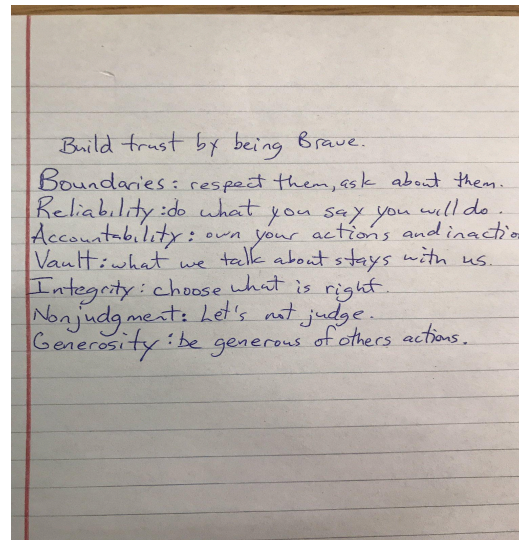 Build trust by being Brave.
Boundaries: respect them, ask about them.
Reliability: do what you say you will do.
Accountability: own your actions and inactio
Vault: what we talk about stays with us.
Integrity: choose what is right.
Nonjudgment: Let's not judge.
Generosity: be generous of others actions.